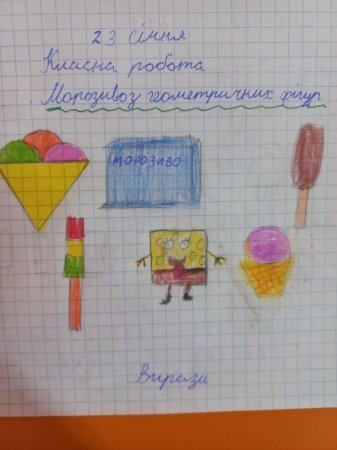 23 січня
Класна робота
Морозивоз геометричних фігур
морозиво
Вирази